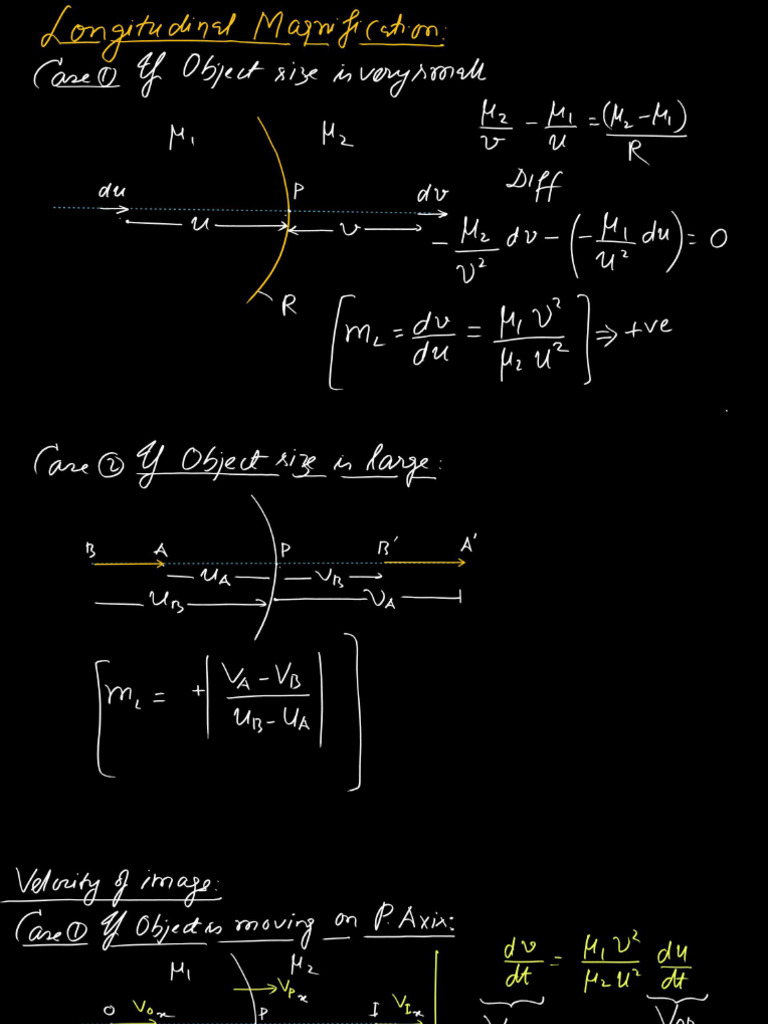 Longitudinal Magnification:
Case ① If Object size is very small
μ₁ μ₂
μ₂/v - μ₁/u = (μ₂-μ₁)/R
Diff
du P dv
u v
-μ₂/v² dv - (-μ₁/u² du) = 0
R
[m_L = dv/du = μ₁v²/μ₂u²] ⇒ +ve
Case ② If Object size is large:
B A P B' A'
u_A v_B
u_B v_A
[m_L = +|(V_A - V_B)/(u_B - u_A)|]
Velocity of image:
Case ① If Object is moving on P. Axix:
dv/dt = μ₁v²/μ₂u² du/dt
μ₁ μ₂
V_Px
O V_Ox P I V_Ix